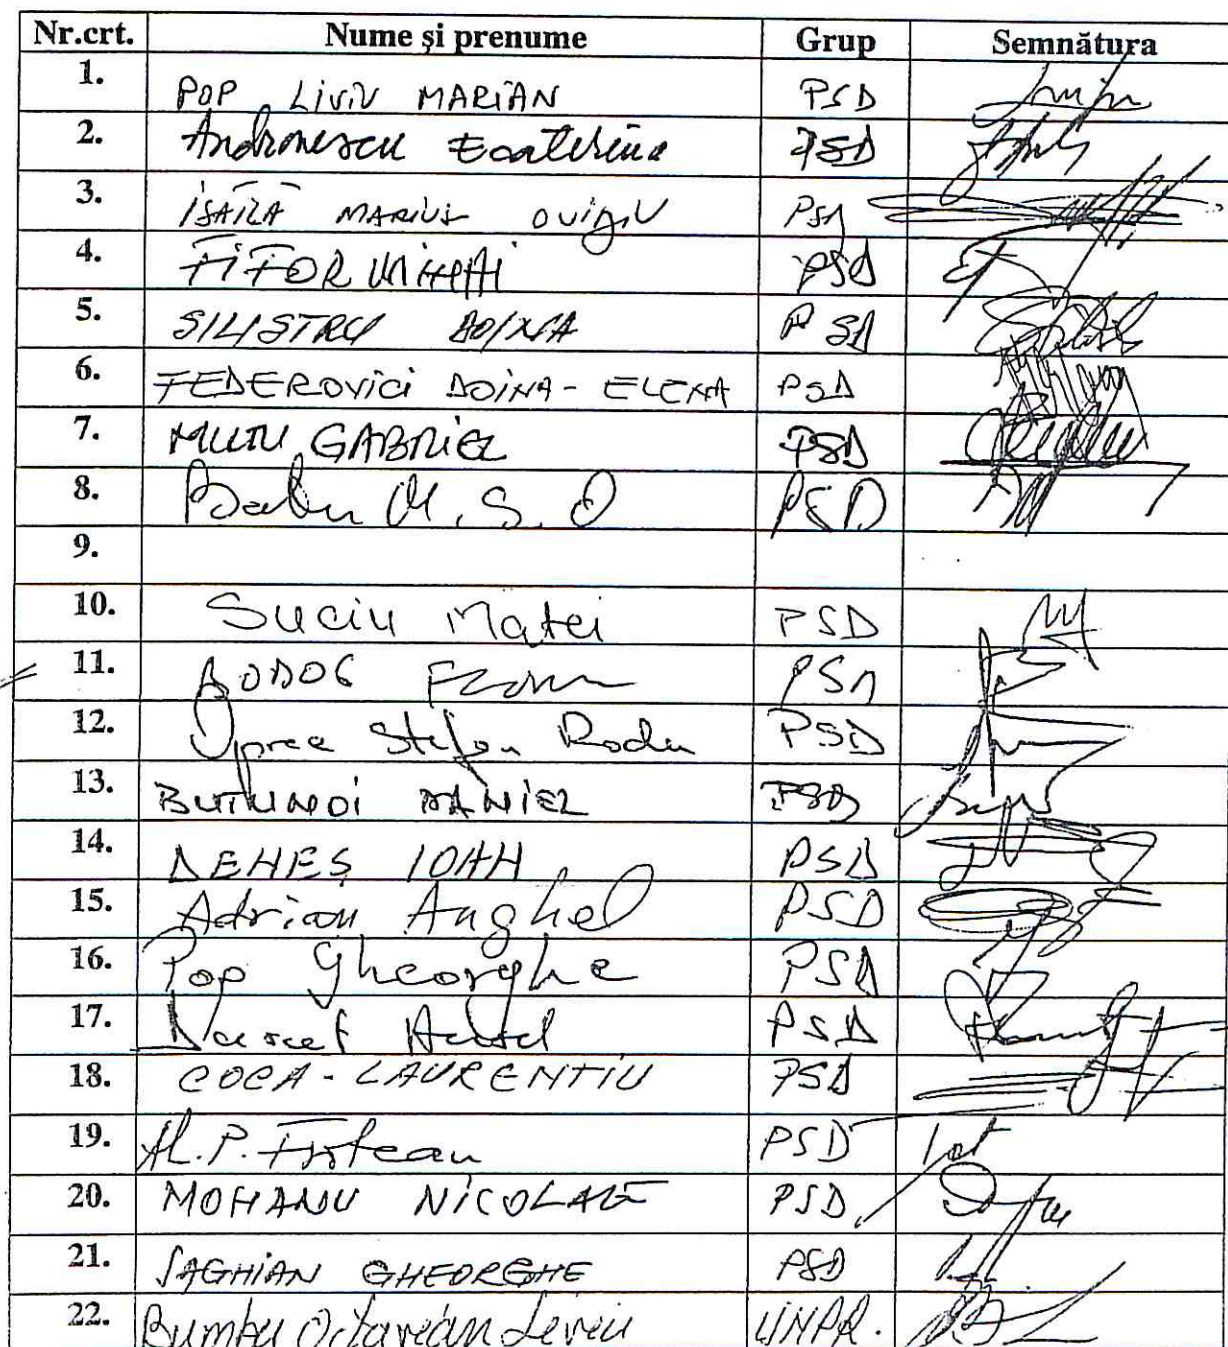 Nr.crt. Nume și prenume Grup Semnătura
1. POP LIVIU MARIAN PSD
2. Andronescu Ecaterina PSD
3. ISĂILĂ MARIUS OVIDIU PSD
4. FIFOR MIHAI PSD
5. SILISTRU DOINA PSD
6. FEDEROVICI DOINA - ELENA PSD
7. MUTU GABRIEL PSD
8. M. S. O PSD
9.
10. Suciu Matei PSD
11. BODOG PSD
12. Oprea Stefan Radu PSD
13. BUTUNOI DANIEL PSD
14. DENEȘ IOAN PSD
15. Adrian Anghel PSD
16. Pop Gheorghe PSD
17. PSD
18. COCA - LAURENTIU PSD
19. Al. P. PSD
20. MOHANU NICOLAE PSD
21. SAGHIAN GHEORGHE PSD
22. Bumbu Octavian Liviu UNPR.